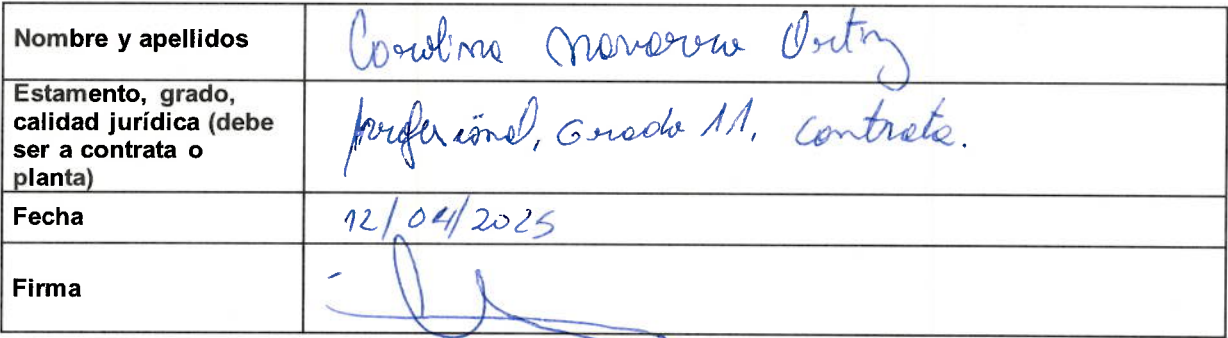 Nombre y apellidos
Carolina Navarro Ortiz
Estamento, grado,
calidad jurídica (debe
ser a contrata o
planta)
profesional, Grado 11, contrata.
Fecha
12/04/2025
Firma